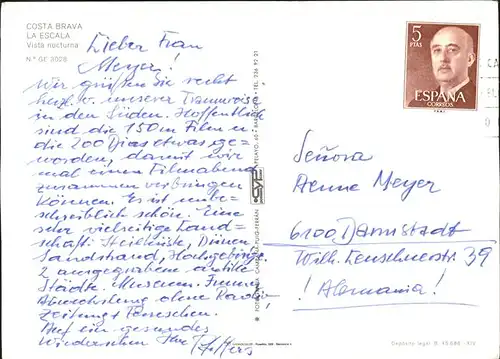 COSTA BRAVA
LA ESCALA
Vista nocturna
N.º GE 3028
Lieber Frau
Meyer!
Wir grüßen Sie recht
herzl. v. unserer Traumreise
in den Süden. Hoffentlich
sind die 150 m Film u
die 200 Dias etwas ge-
worden, damit wir
mal einen Filmabend
zusammen verbringen
können. Es ist unbe-
schreiblich schön. Eine
sehr vielseitige Land-
schaft: Steilküste, Dünen
Sandstrand, Hochgebirge
2 ausgegrabene antike
Städte. Museum. Immer
Abwechslung ohne Radio
Zeitung + Fernsehen.
Auf ein gesundes
Wiedersehen Ihr
5
PTAS
ESPAÑA
CORREOS
Señora
Aenne Meyer
6100 Darmstadt
Wilh. Leuschnerstr. 39
! Alemania!
Depósito legal B.